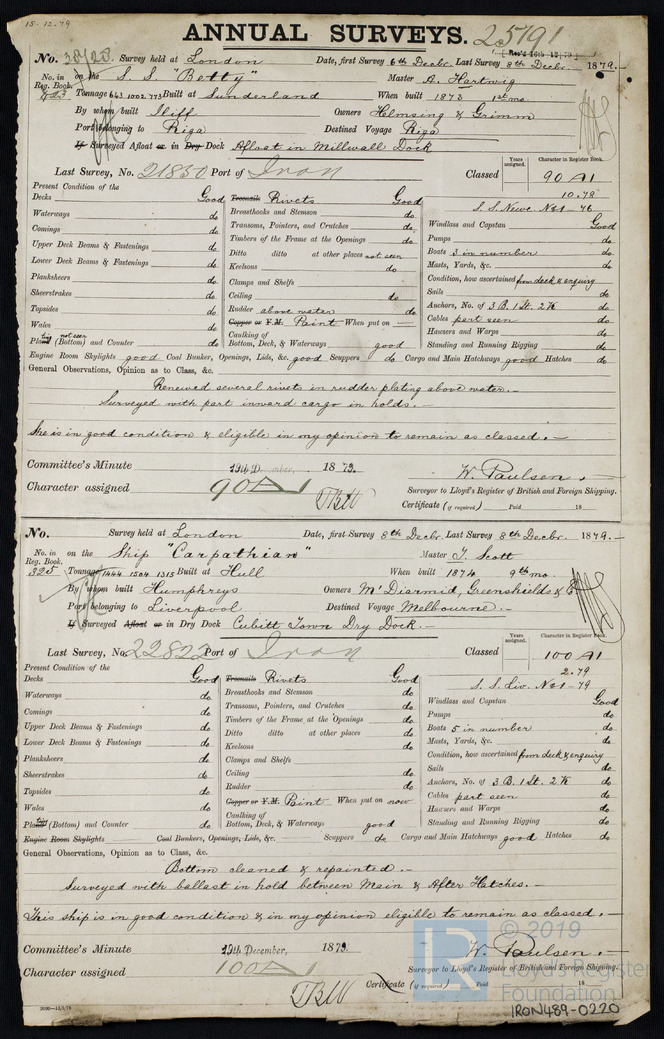 15-12-79
ANNUAL SURVEYS. 25191
No. Survey held at London Date, first Survey 6th Decbr. Last Survey 8th Decbr. 1879.
No. in Reg. Book. on the S.S. "Betty" Master A. Hartwig
Tonnage 643 1002 773 Built at Sunderland When built 1873 1st mo.
By whom built Iliff Owners Helmsing & Grimm
Port belonging to Riga Destined Voyage Riga
If Surveyed Afloat or in Dry Dock Afloat in Millwall Dock
Last Survey, No. 21850 Port of Iron Classed Years assigned. 90 Character in Register Book. A1
10.78
S.S. Newc. No1-76
Present Condition of the
Decks Good Treenails Rivets Good
Waterways do Breasthooks and Stemson do Windlass and Capstan Good
Comings do Transoms, Pointers, and Crutches do Pumps do
Upper Deck Beams & Fastenings do Timbers of the Frame at the Openings do Boats 3 in number do
Lower Deck Beams & Fastenings do Ditto ditto at other places not seen Masts, Yards, &c. do
Planksheers do Keelsons do Condition, how ascertained from deck & enquiry
Sheerstrakes do Clamps and Shelfs Sails do
Topsides do Ceiling do Anchors, No. of 3 B. 1 St. 2 K do
Wales do Rudder above water do Cables part seen do
Plating not seen (Bottom) and Counter do Copper or Y.M. Paint When put on Hawsers and Warps do
Caulking of Bottom, Deck, & Waterways good Standing and Running Rigging do
Engine Room Skylights good Coal Bunker, Openings, Lids, &c. good Scuppers do Cargo and Main Hatchways good Hatches do
General Observations, Opinion as to Class, &c.
Renewed several rivets in rudder plating above water.
Surveyed with part inward cargo in holds.
She is in good condition & eligible in my opinion to remain as classed.
Committee's Minute 19th December, 1879. W. Paulsen
Character assigned 90 A1 Surveyor to Lloyd's Register of British and Foreign Shipping.
Certificate (if required) Paid 18
No. Survey held at London Date, first Survey 8th Decbr. Last Survey 8th Decbr. 1879.
No. in Reg. Book. 325 on the Ship "Carpathian" Master J. Scott
Tonnage 1444 1504 1315 Built at Hull When built 1874 9th mo.
By whom built Humphreys Owners McDiarmid, Greenshields & Co
Port belonging to Liverpool Destined Voyage Melbourne
If Surveyed Afloat or in Dry Dock Cubitt Town Dry Dock.
Last Survey, No. 22822 Port of Iron Classed Years assigned. 100 Character in Register Book. A1
2.79
S.S. Liv. No1-79
Present Condition of the
Decks Good Treenails Rivets Good
Waterways do Breasthooks and Stemson do Windlass and Capstan Good
Comings do Transoms, Pointers, and Crutches do Pumps do
Upper Deck Beams & Fastenings do Timbers of the Frame at the Openings do Boats 5 in number do
Lower Deck Beams & Fastenings do Ditto ditto at other places do Masts, Yards, &c. do
Planksheers do Keelsons do Condition, how ascertained from deck & enquiry
Sheerstrakes do Clamps and Shelfs Sails do
Topsides do Ceiling do Anchors, No. of 3 B. 1 St. 2 K do
Wales do Rudder do Cables part seen do
Plating (Bottom) and Counter do Copper or Y.M. Paint When put on now Hawsers and Warps do
Caulking of Bottom, Deck, & Waterways good Standing and Running Rigging do
Engine Room Skylights Coal Bunkers, Openings, Lids, &c. Scuppers do Cargo and Main Hatchways good Hatches do
General Observations, Opinion as to Class, &c.
Bottom cleaned & repainted.
Surveyed with ballast in hold between Main & After Hatches.
This ship is in good condition & in my opinion eligible to remain as classed.
Committee's Minute 19th December, 1879. W. Paulsen
Character assigned 100 A1 Surveyor to Lloyd's Register of British and Foreign Shipping.
Certificate (if required) Paid 18
© 2019
LR Lloyd's Register Foundation
IRON489-0220